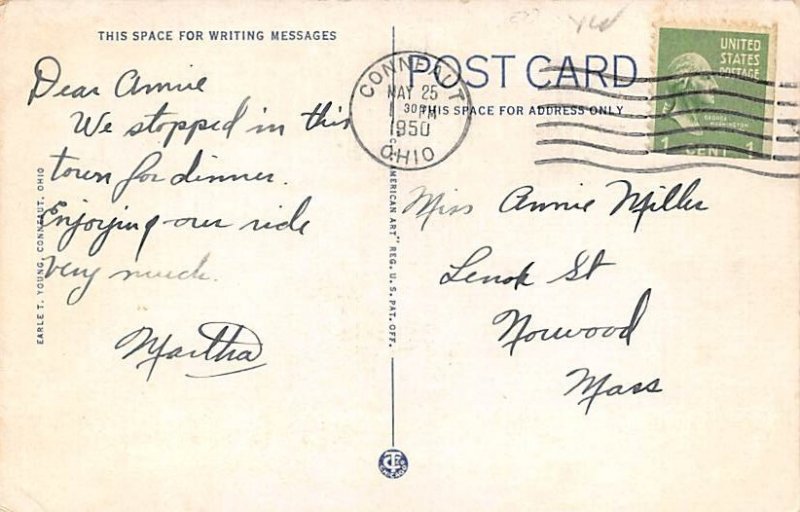 THIS SPACE FOR WRITING MESSAGES
Dear Annie
We stopped in this
town for dinner.
Enjoying our ride
very much.
Martha
EARLE T. YOUNG, CONNEAUT, OHIO
AMERICAN ART" REG. U.S. PAT. OFF.
POST CARD
THIS SPACE FOR ADDRESS ONLY
CONNEAUT
MAY 25
30 PM
1950
OHIO
UNITED
STATES
POSTAGE
GEORGE
WASHINGTON
1 CENT 1
Miss Annie Miller
Lenox St
Norwood
Mass
CHICAGO